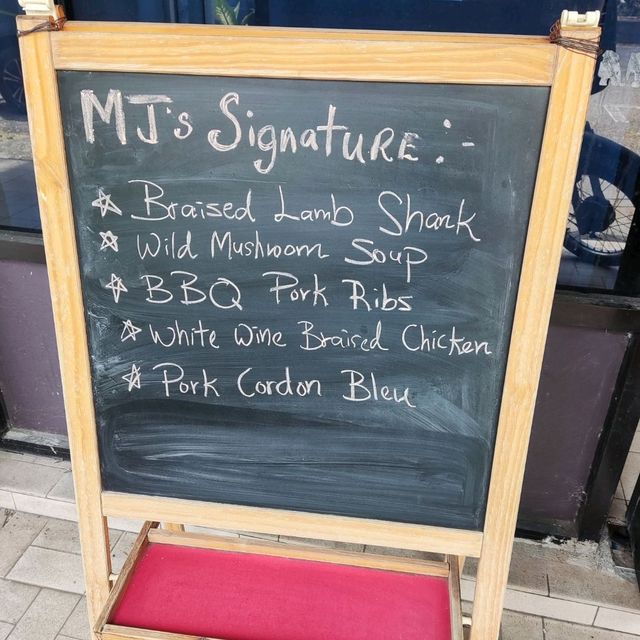 MJ's Signature :-
☆ Braised Lamb Shank
☆ Wild Mushroom Soup
☆ BBQ Pork Ribs
☆ White Wine Braised Chicken
☆ Pork Cordon Bleu